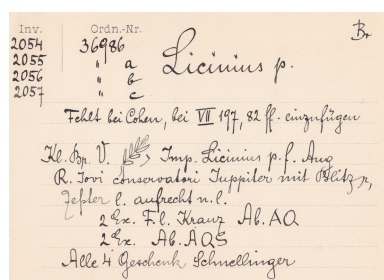 Inv. Ordn.-Nr. Br
2054 36986 Licinius p.
2055 " a
2056 " b
2057 " c
Fehlt bei Cohen, bei VII 197, 82 ff. einzufügen
Kl. Br. V. Imp. Licinius p. f. Aug
R. Jovi conservatori Juppiter mit Blitz r,
Zepter l. aufrecht n. l.
2 Ex. F. l. Kranz Ab. AQ
2 Ex. Ab. AQS
Alle 4 Geschenk Schnellinger